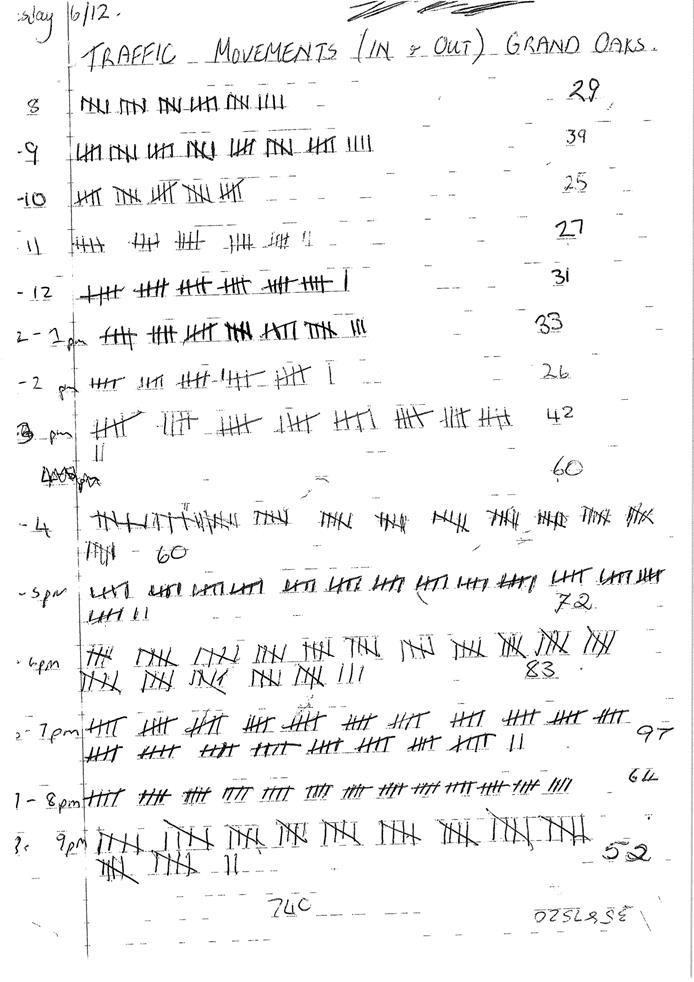 6/12.
TRAFFIC MOVEMENTS (IN & OUT) GRAND OAKS.
8 29
-9 39
-10 25
11 27
-12 31
2-1pm 33
-2 pm 26
3 pm 42
60
-4
60
-5pm
72
6pm
83
-7pm 97
7-8pm 64
9pm 52
740
3587520